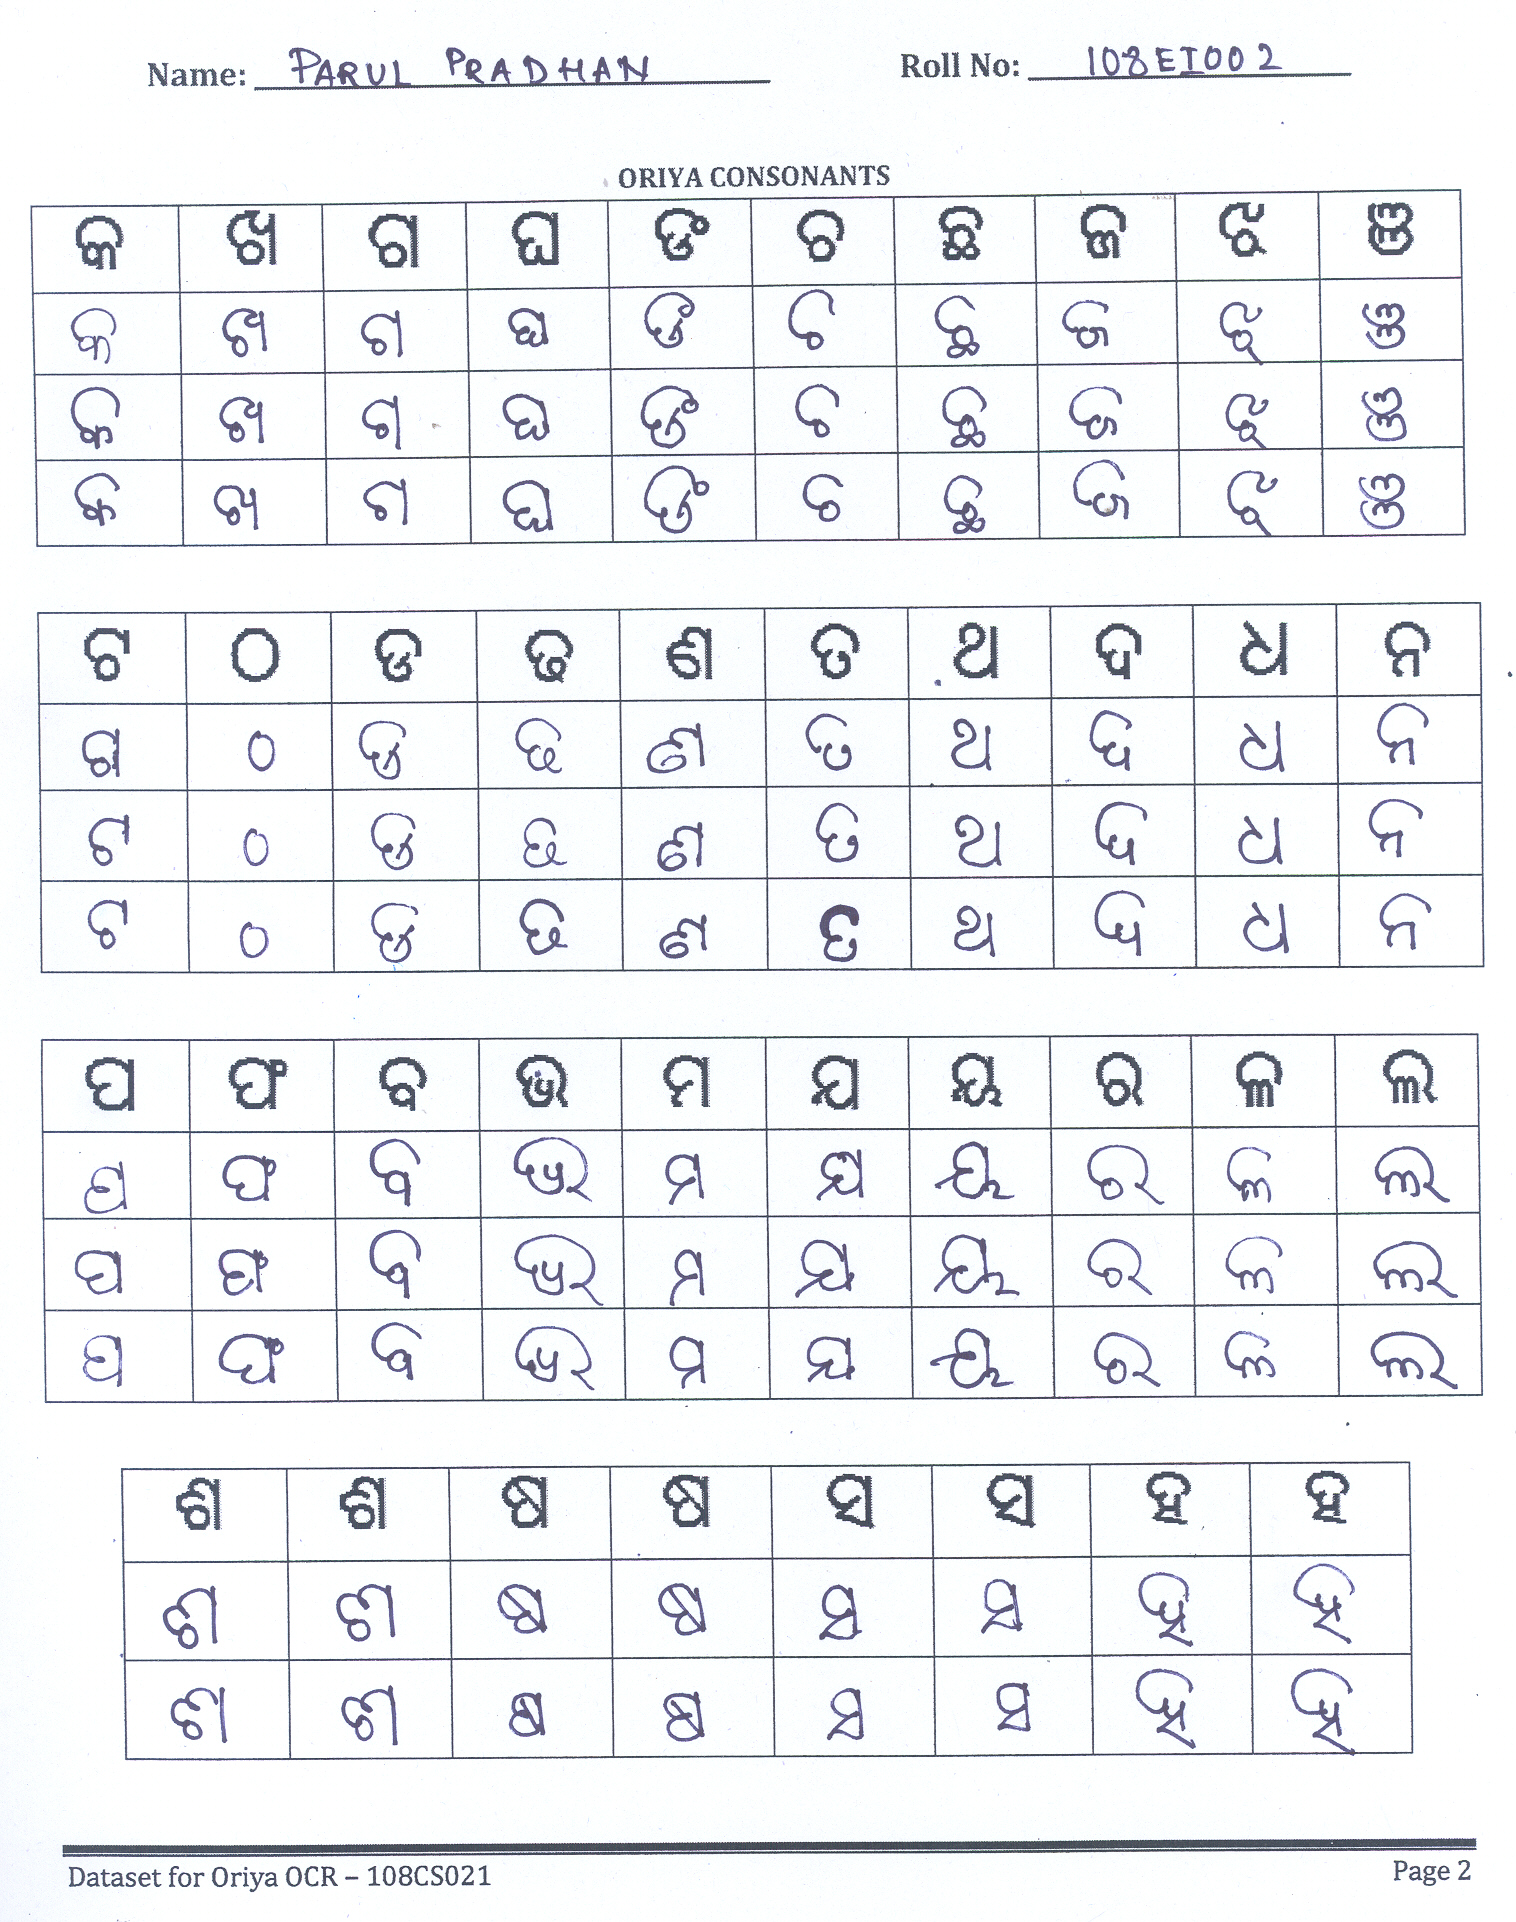 Name: PARUL PRADHAN Roll No: 108EI002
ORIYA CONSONANTS
କ ଖ ଗ ଘ ଙ ଚ ଛ ଜ ଝ ଞ
କ ଖ ଗ ଘ ଙ ଚ ଛ ଜ ଝ ଞ
କ ଖ ଗ ଘ ଙ ଚ ଛ ଜ ଝ ଞ
କ ଖ ଗ ଘ ଙ ଚ ଛ ଜ ଝ ଞ
ଟ ଠ ଡ ଢ ଣ ତ ଥ ଦ ଧ ନ
ଟ ଠ ଡ ଢ ଣ ତ ଥ ଦ ଧ ନ
ଟ ଠ ଡ ଢ ଣ ତ ଥ ଦ ଧ ନ
ଟ ଠ ଡ ଢ ଣ ତ ଥ ଦ ଧ ନ
ପ ଫ ବ ଭ ମ ଯ ୟ ର ଳ ଲ
ପ ଫ ବ ଭ ମ ଯ ୟ ର ଳ ଲ
ପ ଫ ବ ଭ ମ ଯ ୟ ର ଳ ଲ
ପ ଫ ବ ଭ ମ ଯ ୟ ର ଳ ଲ
ଶ ଶ ଷ ଷ ସ ସ ହ ହ
ଶ ଶ ଷ ଷ ସ ସ ହ ହ
ଶ ଶ ଷ ଷ ସ ସ ହ ହ
Dataset for Oriya OCR – 108CS021 Page 2